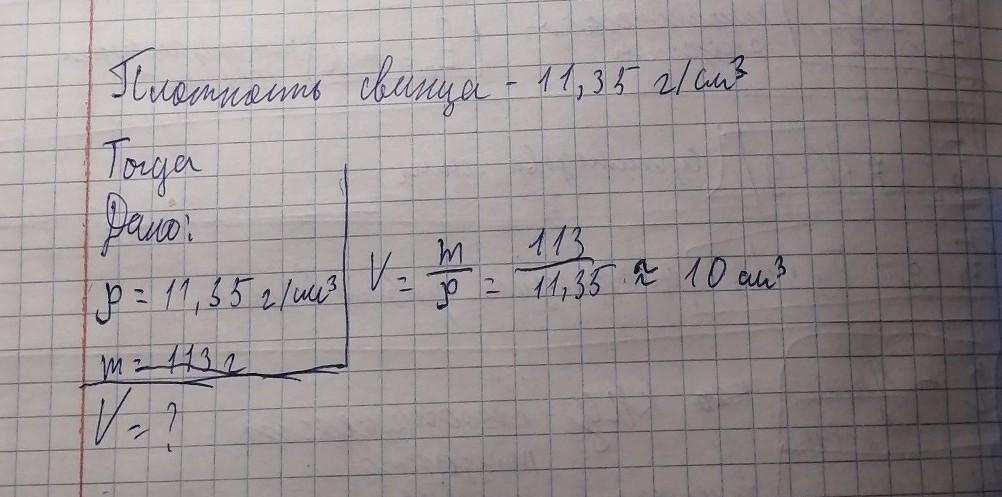 Плотность свинца - 11,35 г/см³
Тогда
Дано:
ρ = 11,35 г/см³
m = 113 г
V = ?
V = m/ρ = 113/11,35 ≈ 10 см³